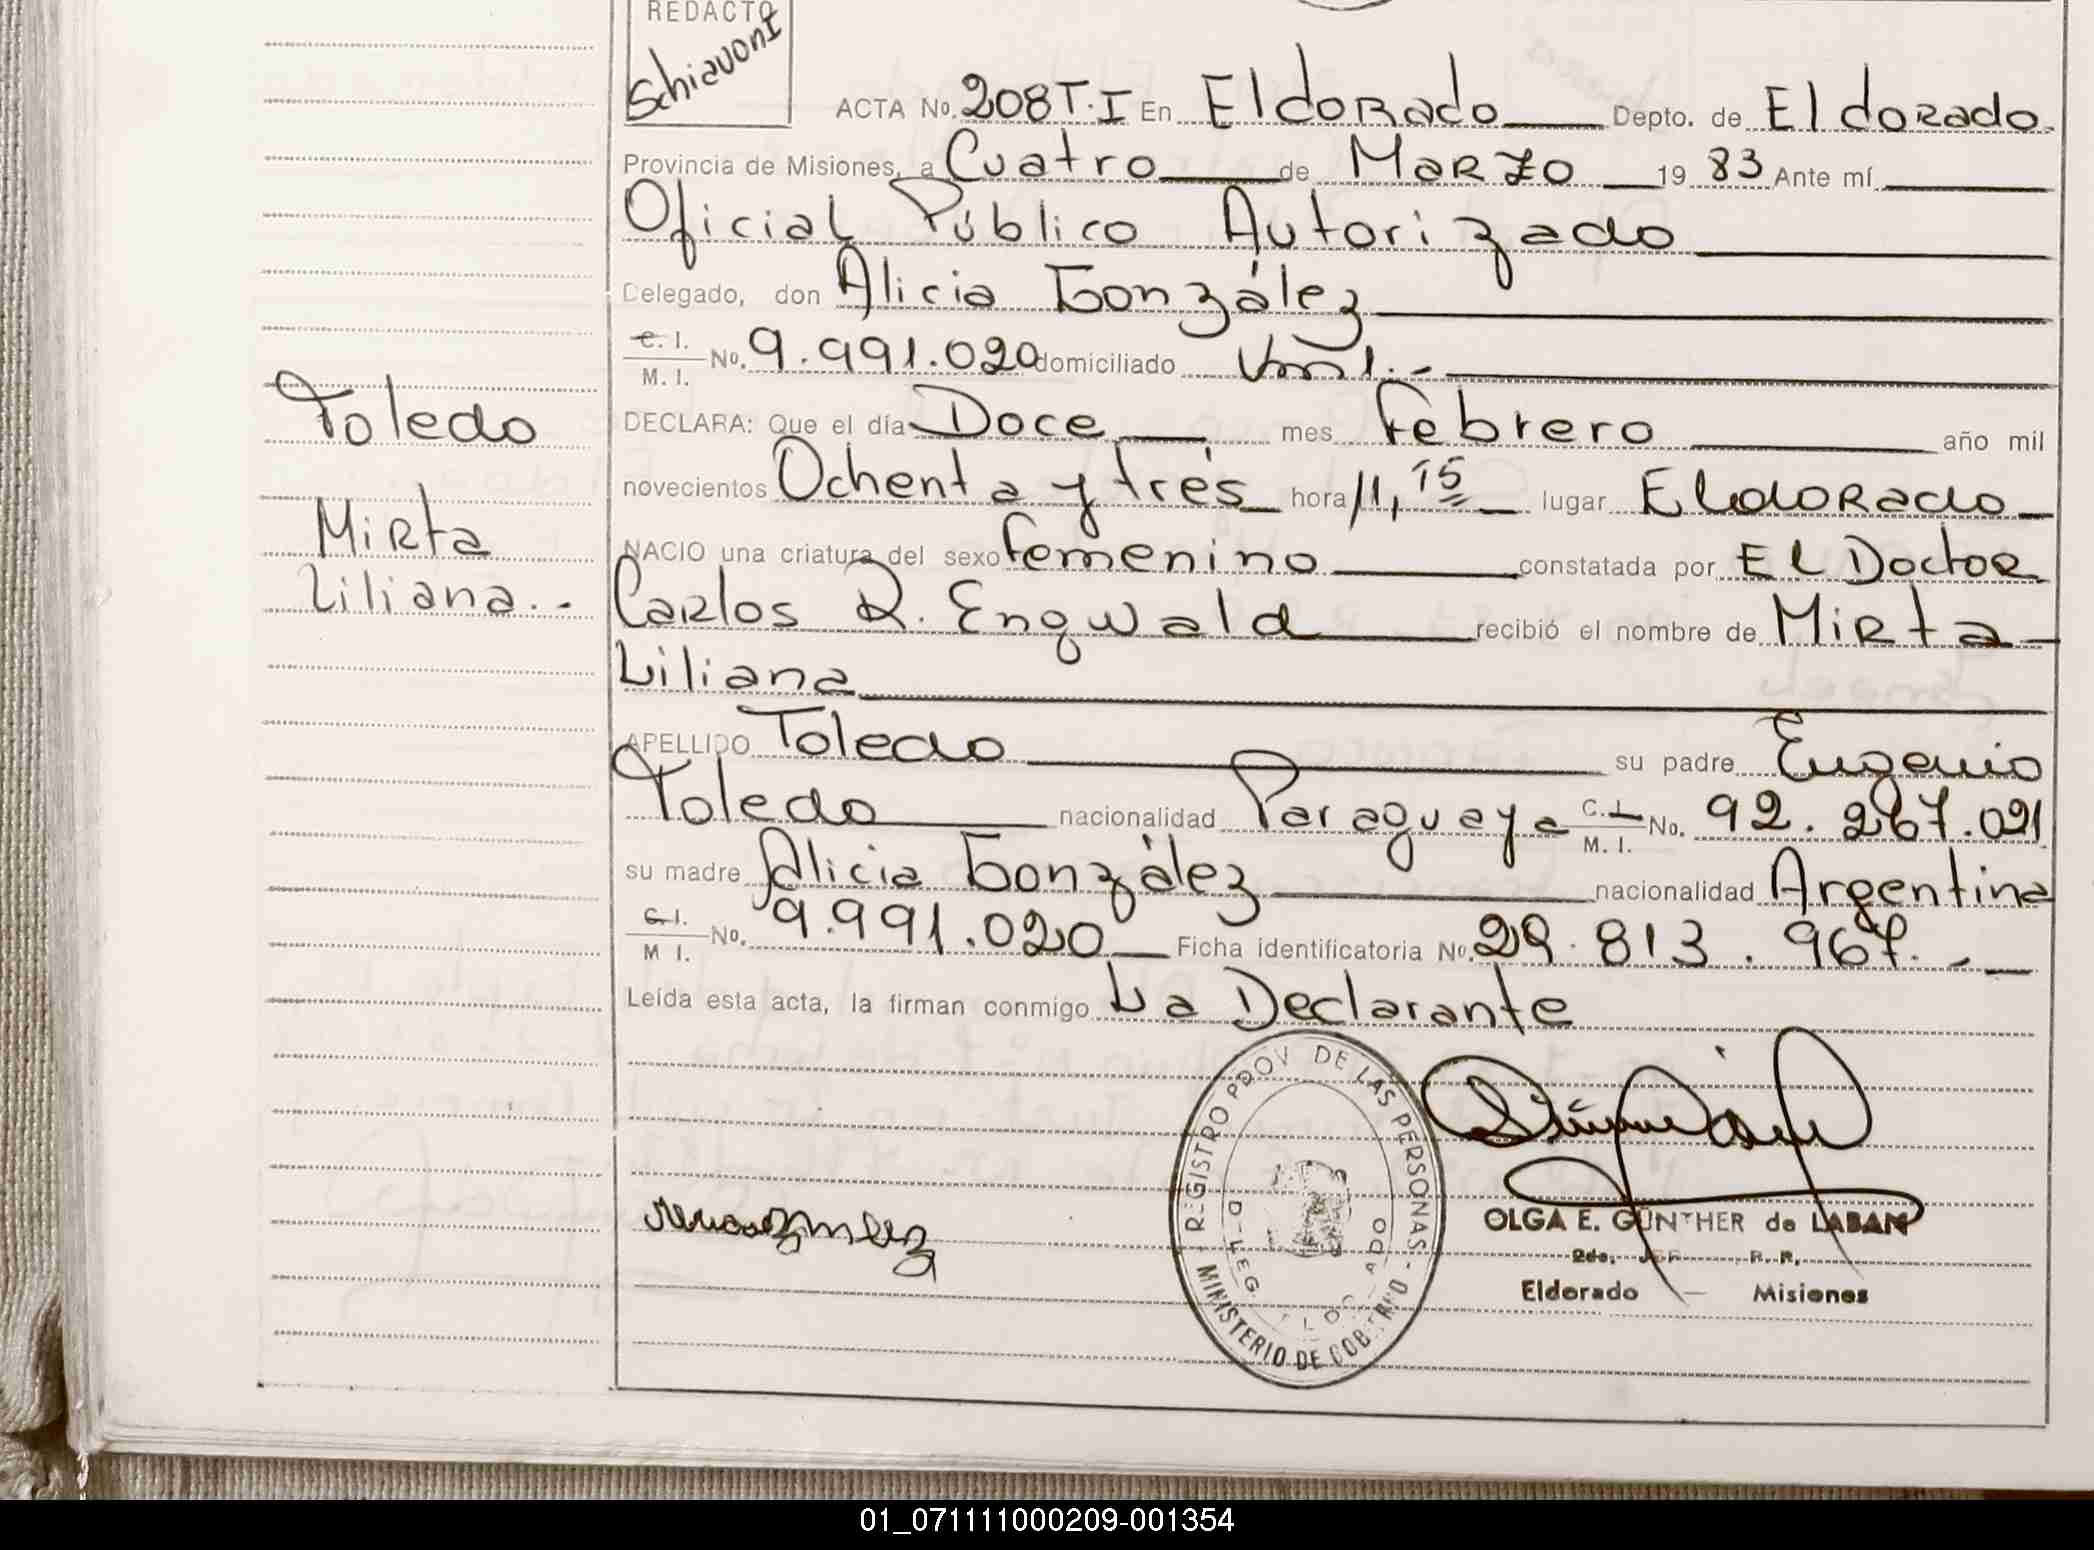 REDACTO
Schiavoni
ACTA No. 208 T.I En Eldorado Depto. de Eldorado.
Provincia de Misiones, a Cuatro de Marzo 19 83 Ante mí
Oficial Público Autorizado
Delegado, don Alicia González
C. I.
M. I. No. 9.991.020 domiciliado
Toledo
DECLARA: Que el día Doce mes Febrero año mil
novecientos Ochenta y tres hora 11,15 lugar Eldorado
Mirta
NACIO una criatura del sexo femenino constatada por El Doctor
Liliana.-
Carlos R. Engwald recibió el nombre de Mirta
Liliana
APELLIDO Toledo su padre Eugenio
Toledo nacionalidad Paraguaya C. I. M. I. No. 92.267.021
su madre Alicia González nacionalidad Argentina
C. I.
M I. No. 9.991.020 Ficha identificatoria No. 29.813.967.-
Leída esta acta, la firman conmigo La Declarante
REGISTRO PROV DE LAS PERSONAS - MINISTERIO DE GOBIERNO
OLGA E. GÜNTHER de LABAN
2do. JEF R. P.
Eldorado — Misiones
01_071111000209-001354